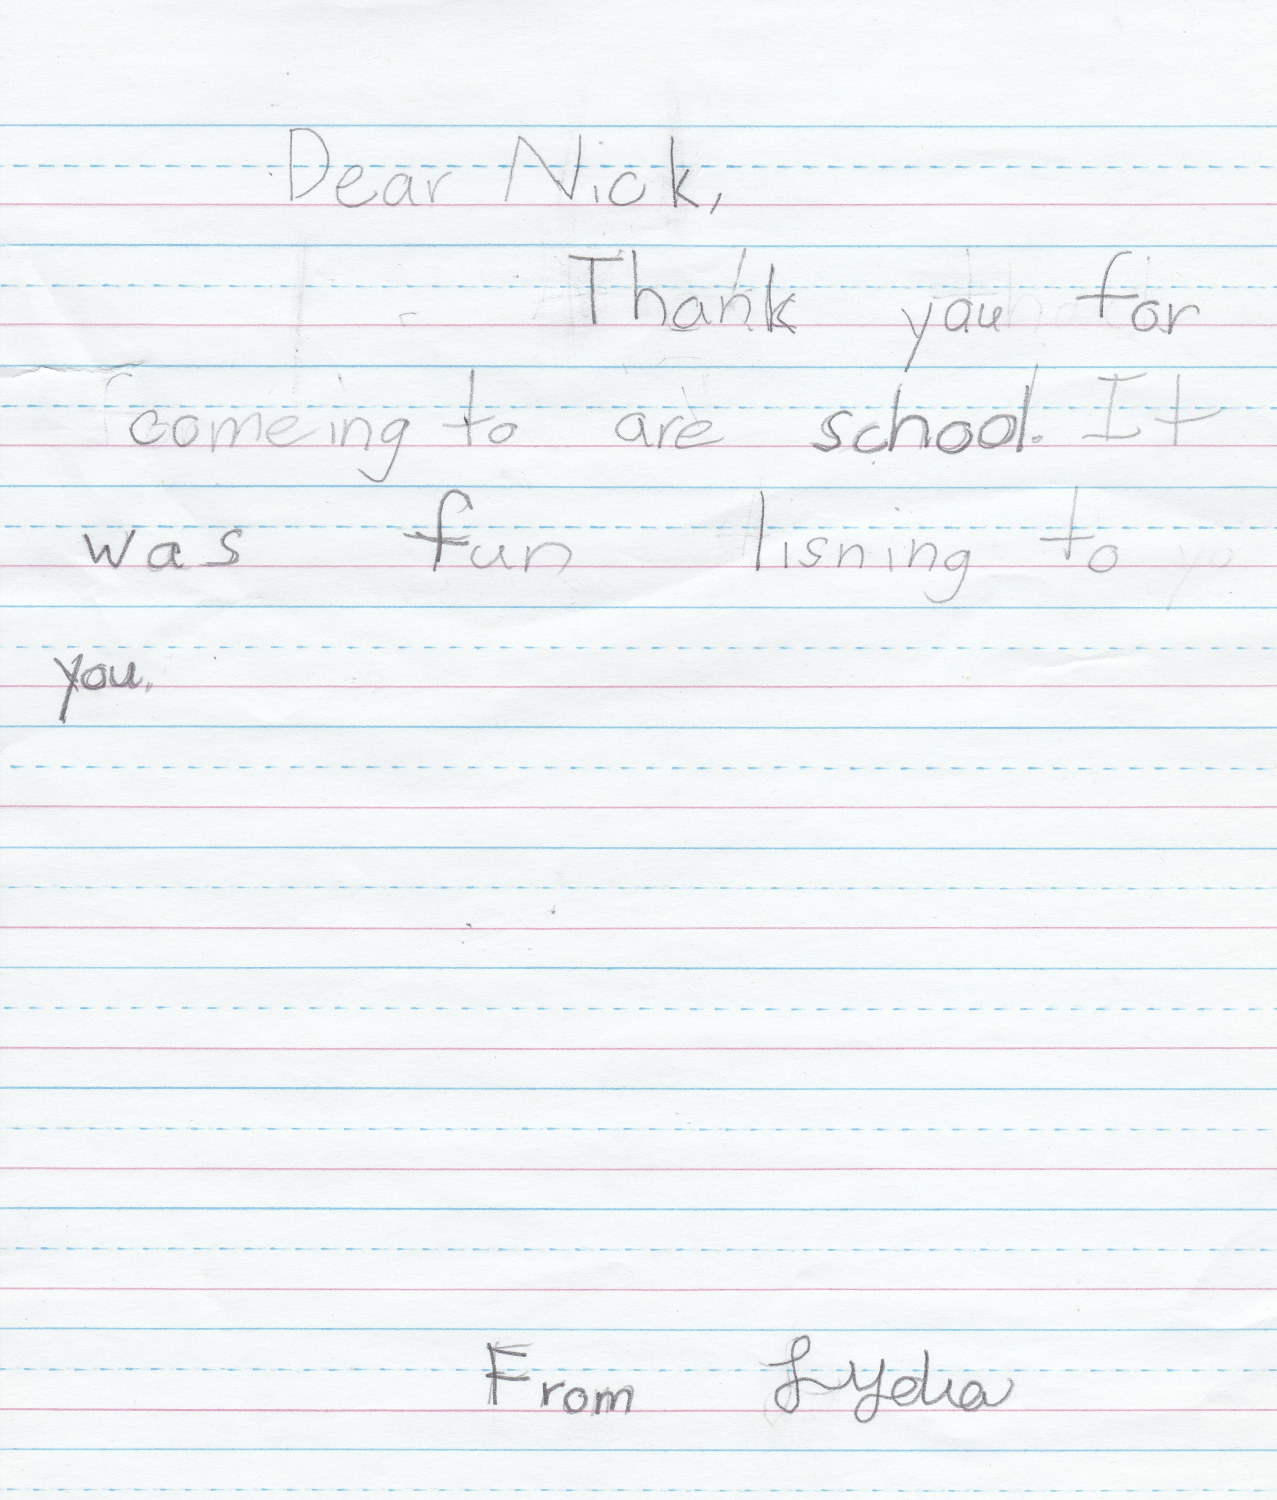 Dear Nick,
Thank you for
comeing to are school. It
was fun lisning to
you.
From Lydia